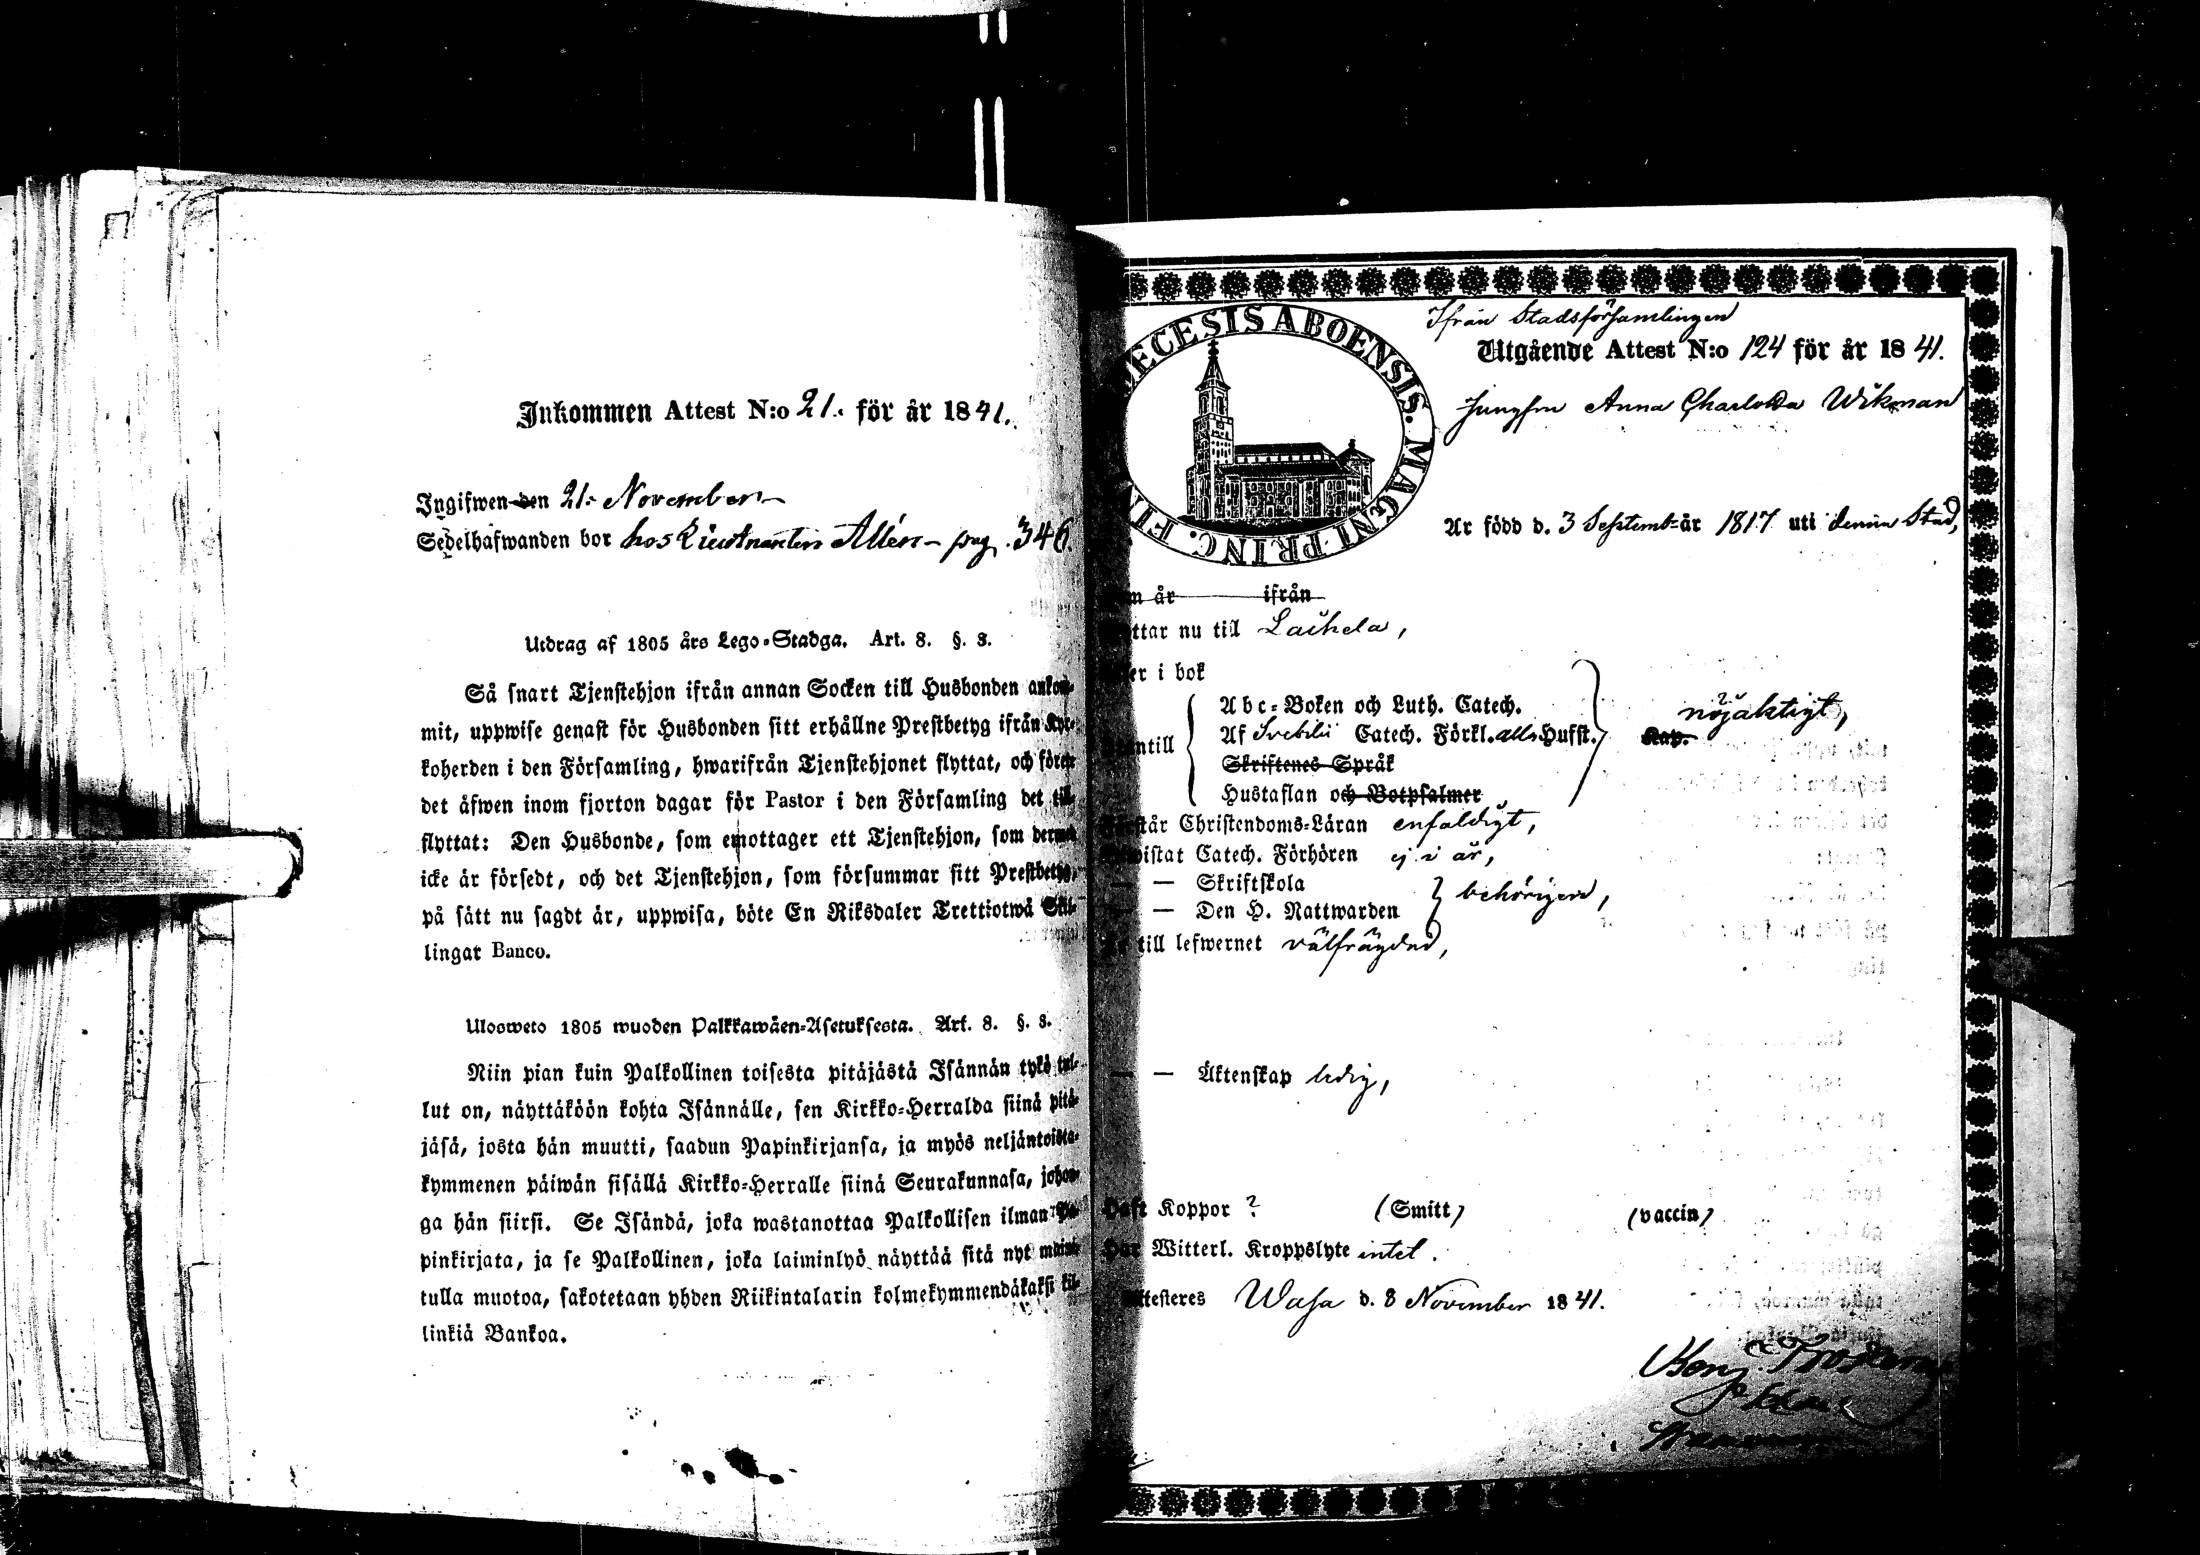 Inkommen Attest N:o 21. för år 1841.
Ingifwen den 21. November
Sedelhafwanden bor hos Lieutnanten Allén pag. 346.
Utdrag af 1805 års Lego-Stadga. Art. 8. §. 8.
Så snart Tjenstehjon ifrån annan Socken till Husbonden ankom-
mit, uppwise genast för Husbonden sitt erhållne Prestbetyg ifrån Kyr-
koherden i den Församling, hwarifrån Tjenstehjonet flyttat, och förete
det äfwen inom fjorton dagar för Pastor i den Församling det till-
flyttat: Den Husbonde, som emottager ett Tjenstehjon, som dermed
icke är försedt, och det Tjenstehjon, som försummar sitt Prestbetyg,
på sätt nu sagdt är, uppwisa, böte En Riksdaler Trettiotwå Skil-
lingar Banco.
Ulosweto 1805 wuoden Palkkawäen-Asetuksesta. Art. 8. §. 8.
Niin pian kuin Palkollinen toisesta pitäjästä Isännän tykö tul-
lut on, näyttäköön kohta Isännälle, sen Kirkko-Herralda siinä pitä-
jäsä, josta hän muutti, saadun Papinkirjansa, ja myös neljäntoista-
kymmenen päiwän sisällä Kirkko-Herralle siinä Seurakunnasa, johon-
ga hän siirsi. Se Isändä, joka wastanottaa Palkollisen ilman Pa-
pinkirjata, ja se Palkollinen, joka laiminlyö näyttää sitä nyt mainit-
tulla muotoa, sakotetaan yhden Riikintalarin kolmekymmendäkaksi kil-
linkiä Bankoa.
ECESIS ABOENSIS. MAGNI PRINC. FIN
Ifrån Stadsförsamlingen
Utgående Attest N:o 124 för år 1841.
Jungfru Anna Charlotta Wikman
Är född d. 3 Septemb= år 1817 uti denna Stad,
år ifrån
ttar nu till Laihela,
er i bok
Abc-Boken och Luth. Catech.
ntill Af Svebilii Catech. Förkl. Husst. Kap. nöjaktigt,
Skriftenes Språk
Hustaflan och Botpsalmer
Förstår Christendoms-Läran enfaldigt,
wistat Catech. Förhören ej i år,
— — Skriftskola
— — Den H. Nattwarden behörigen,
till lefwernet välfrägdad,
— — Äktenskap ledig,
Haft Koppor ? (Smitt) (vaccin)
Har Witterl. Kroppslyte intet.
ttesteres Wasa d. 8 November 1841.